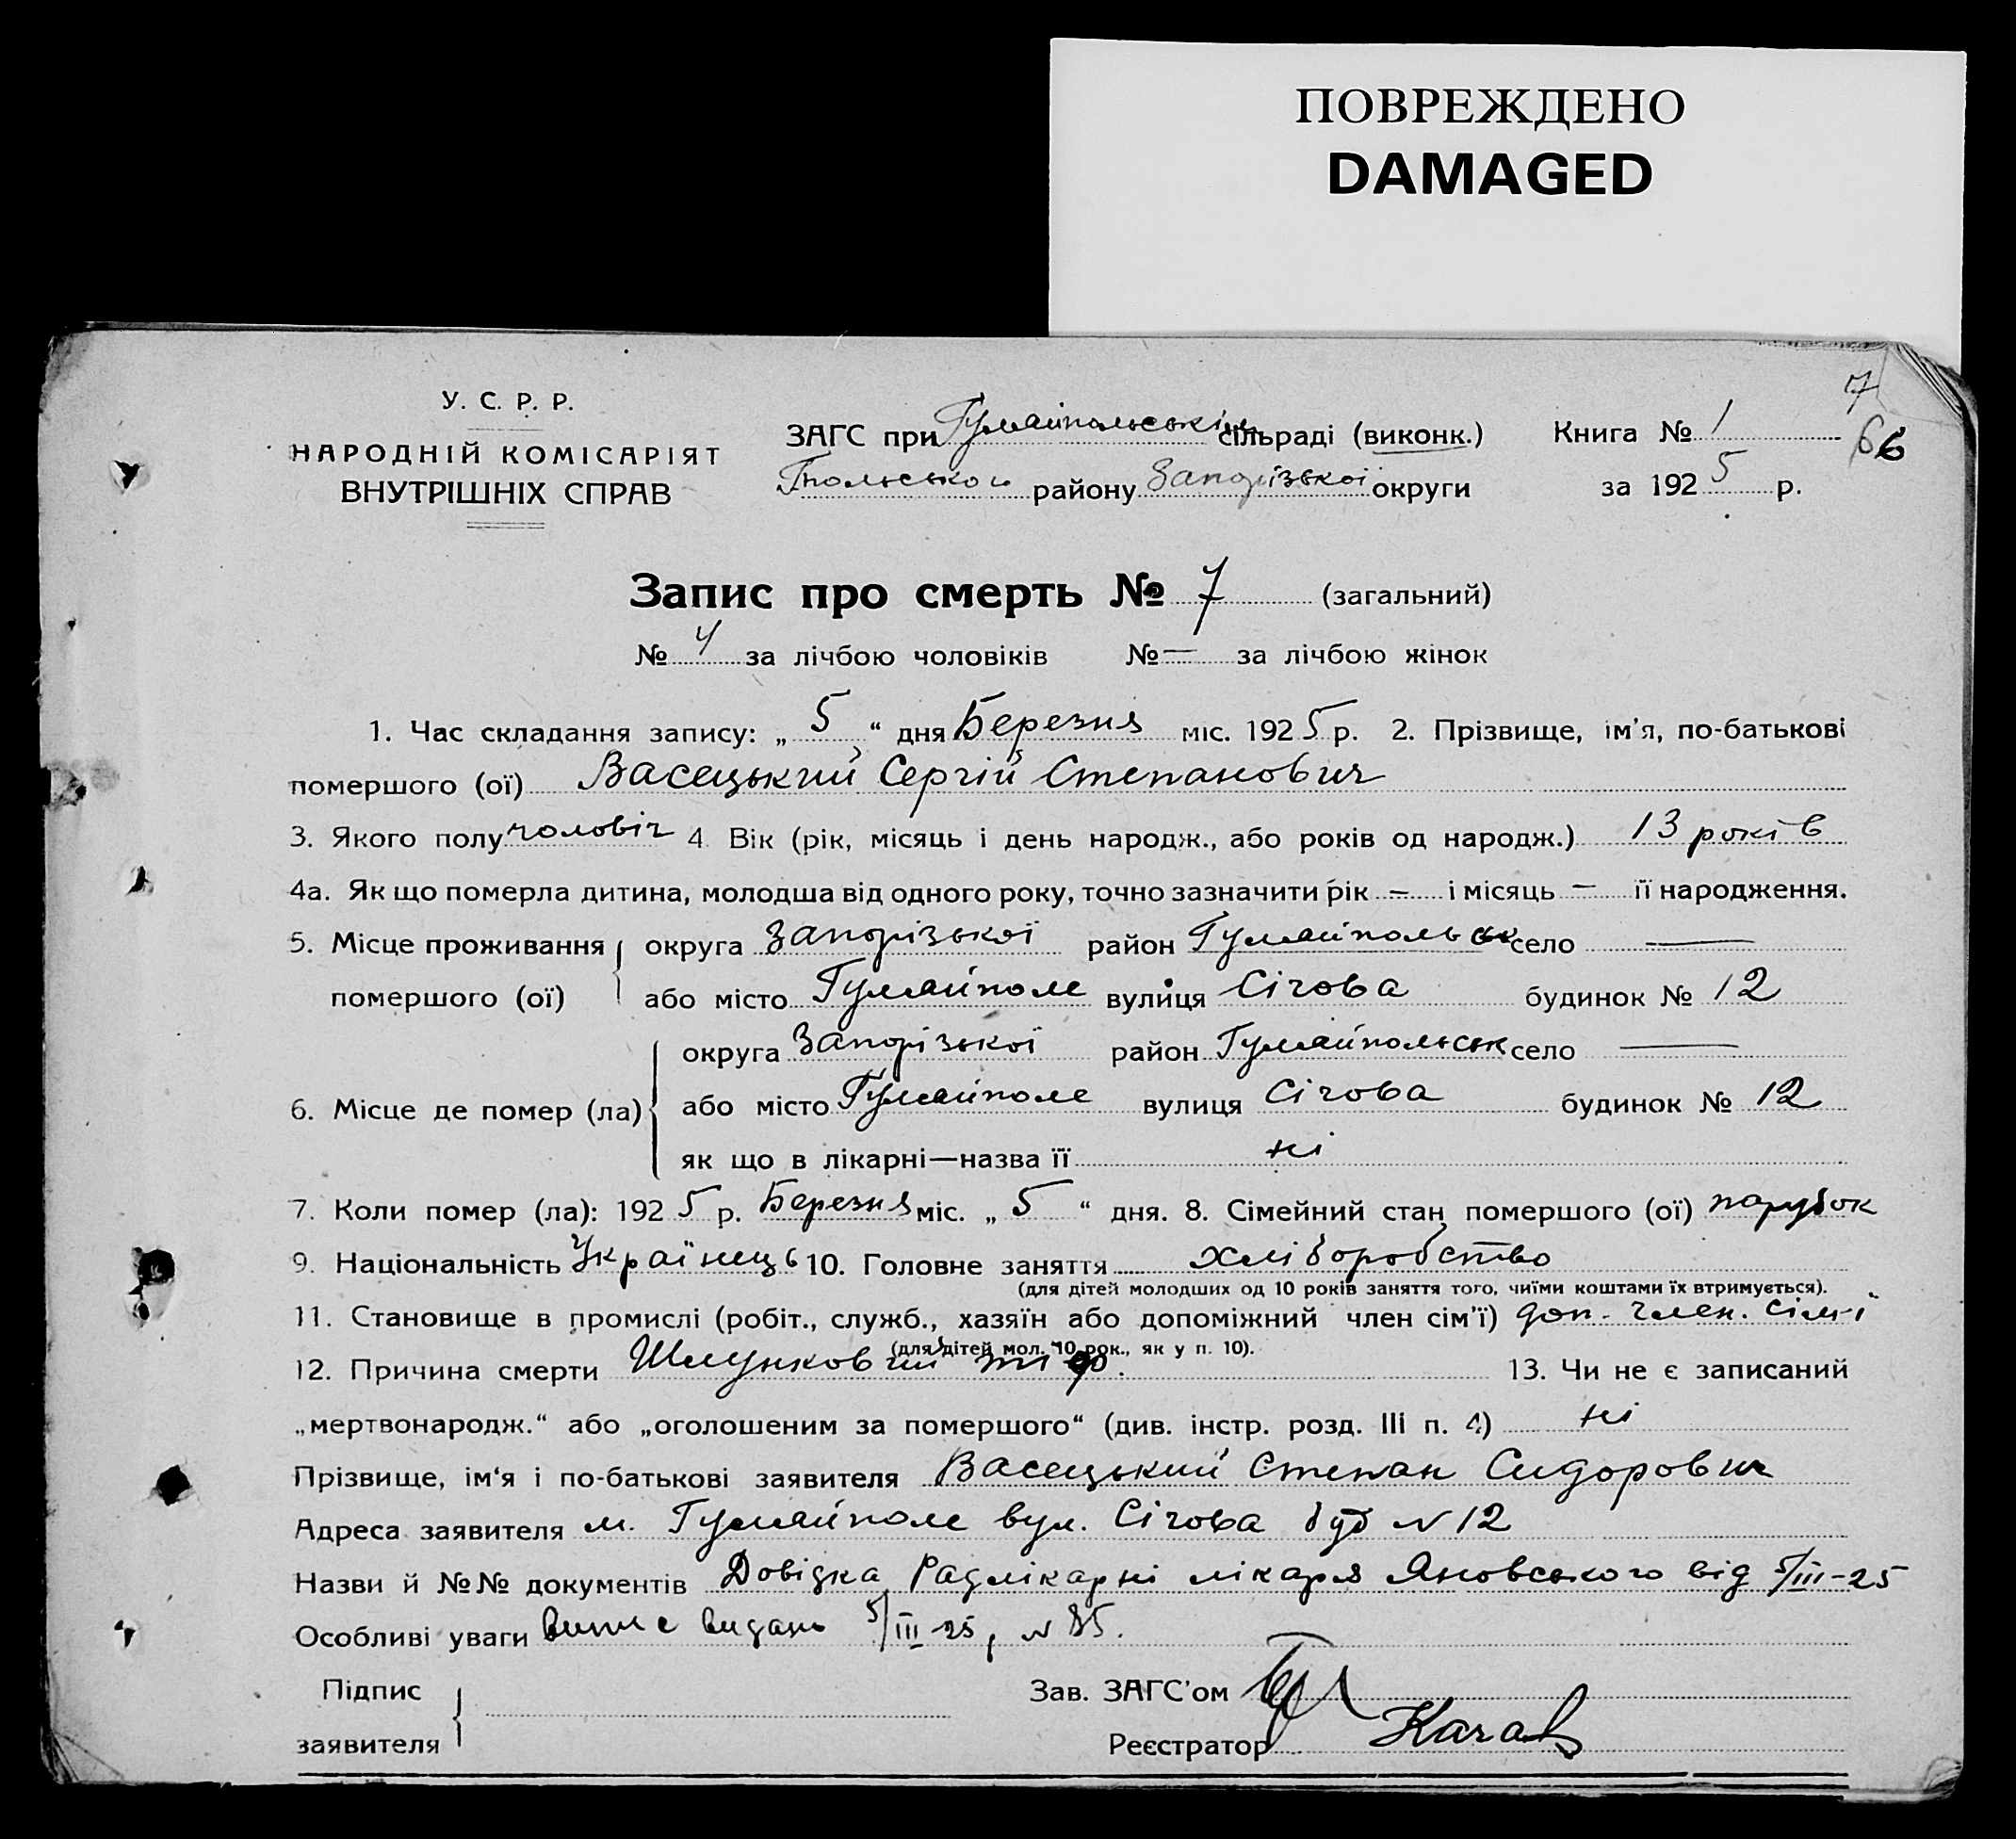 ПОВРЕЖДЕНО
DAMAGED
7
66
У. С. Р. Р.
НАРОДНІЙ КОМІСАРІЯТ
ВНУТРІШНІХ СПРАВ
ЗАГС при Гуляйпольській сільраді (виконк.) Книга № 1
Гпольського району Запорізької округи за 1925 р.
Запис про смерть № 7 (загальний)
№ 4 за лічбою чоловіків № — за лічбою жінок
1. Час складання запису: „ 5 “ дня Березня міс. 1925 р. 2. Прізвище, ім'я, по-батькові
помершого (ої) Васецький Сергій Степанович
3. Якого полу чоловіч 4 Вік (рік, місяць і день народж., або років од народж.) 13 років
4а. Як що померла дитина, молодша від одного року, точно зазначити рік — і місяць — її народження.
5. Місце проживання округа Запорізької район Гуляйпольськ село —
помершого (ої) або місто Гуляйполе вулиця Січова будинок № 12
округа Запорізької район Гуляйпольськ село —
6. Місце де помер (ла) або місто Гуляйполе вулиця Січова будинок № 12
як що в лікарні—назва її ні
7. Коли помер (ла): 1925 р. Березня міс. „ 5 “ дня. 8. Сімейний стан помершого (ої) парубок
9. Національність Українець 10. Головне заняття хліборобство
(для дітей молодших од 10 років заняття того, чиїми коштами їх втримується).
11. Становище в промислі (робіт., служб., хазяїн або допоміжний член сім'ї) доп. член. сім-ї
(для дітей мол. 10 рок., як у п. 10).
12. Причина смерти Шлунковий тиф. 13. Чи не є записаний
„мертвонародж.“ або „оголошеним за помершого“ (див. інстр. розд. III п. 4) ні
Прізвище, ім‘я і по-батькові заявителя Васецький Степан Сидорович
Адреса заявителя м. Гуляйполе вул. Січова буд N 12
Назви й №№ документів Довідка Радлікарні лікаря Яновського від 5/III-25
Особливі уваги випис видань 5/III-25, N 85.
Підпис Зав. ЗАГС'ом
заявителя Реєстратор